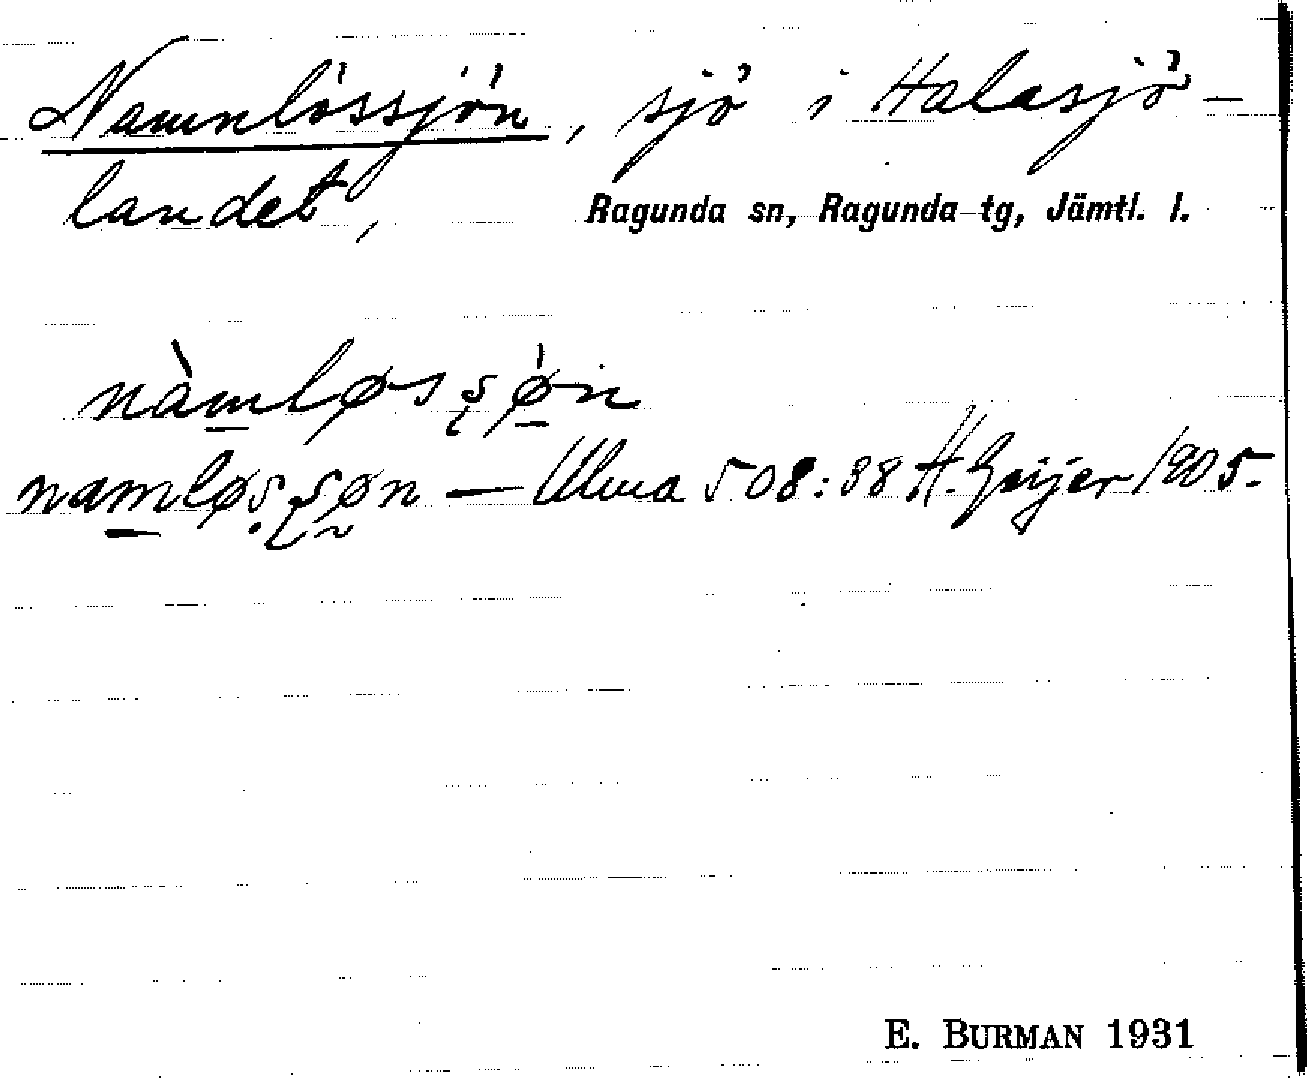 Namnlössjön, sjö i Halasjö-
landet,
Ragunda sn, Ragunda tg, Jämtl. l.
nàmløsʂø̀n
namløsʂøn — Ulma 508:38 H. Geijer 1905.
E. BURMAN 1931